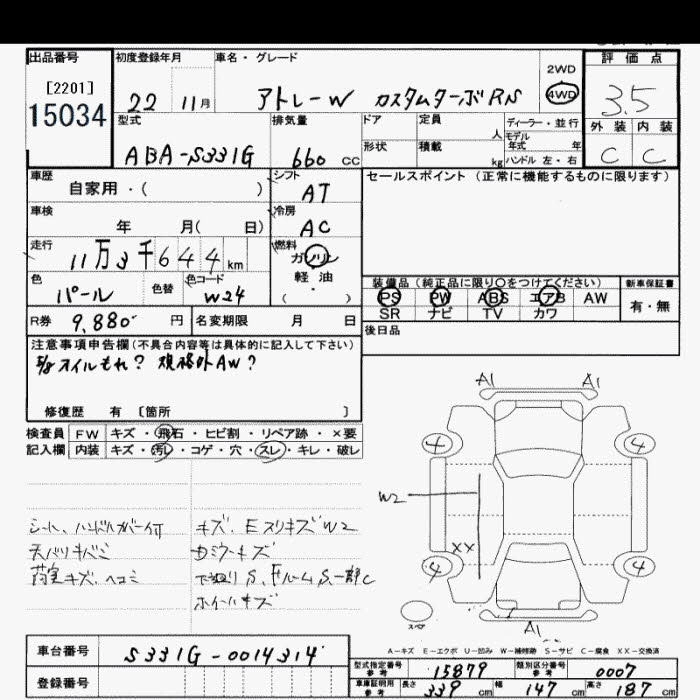 出品番号
[2201]
15034
初度登録年月
22 11月
車名・グレード
アトレーW カスタムターボRS
2WD
4WD
評価点
3.5
外装 内装
C C
型式
ABA-S331G
排気量
660 cc
ドア
定員
人
形状
積載
kg
ディーラー・並行
モデル
年式 年
ハンドル 左・右
車歴
自家用・( )
シフト
AT
セールスポイント (正常に機能するものに限ります)
車検
年 月( 日)
冷房
AC
走行
11万3千644km
燃料
ガソリン
軽・油
( ・ )
色
パール
色替
色コード
W24
装備品 (純正品に限り○をつけてください)
PS PW ABS エアB AW
SR ナビ TV カワ
新車保証書
有・無
R券 9,880 円
名変期限 月 日
後日品
注意事項申告欄(不具合内容等は具体的に記入して下さい)
オイルもれ? 規格外AW?
修復歴 有 〔箇所 〕
検査員 FW キズ・飛石・ヒビ割・リペア跡・×要
記入欄 内装 キズ・汚れ・コゲ・穴・スレ・キレ・破レ
シート、ハンドルカバー付
天バリキバミ
荷室キズ、ヘコミ
キズ、Eスリキズ W2
ホイールキズ
A1 A1
4 4
W2
XX
4 4
スペア
A1
A-キズ E-エクボ U-凹み W-補修跡 S-サビ C-腐食 XX-交換済
車台番号 S331G-0014314
登録番号
型式指定番号
参考
15879
類別区分番号
参考
0007
車庫証明用
参考
長さ 339 cm
幅 147 cm
高さ 187 cm